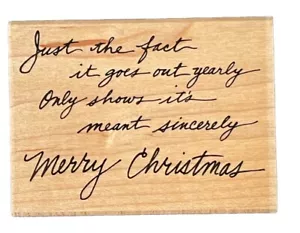 Just the fact
it goes out yearly
Only shows it's
meant sincerely
Merry Christmas